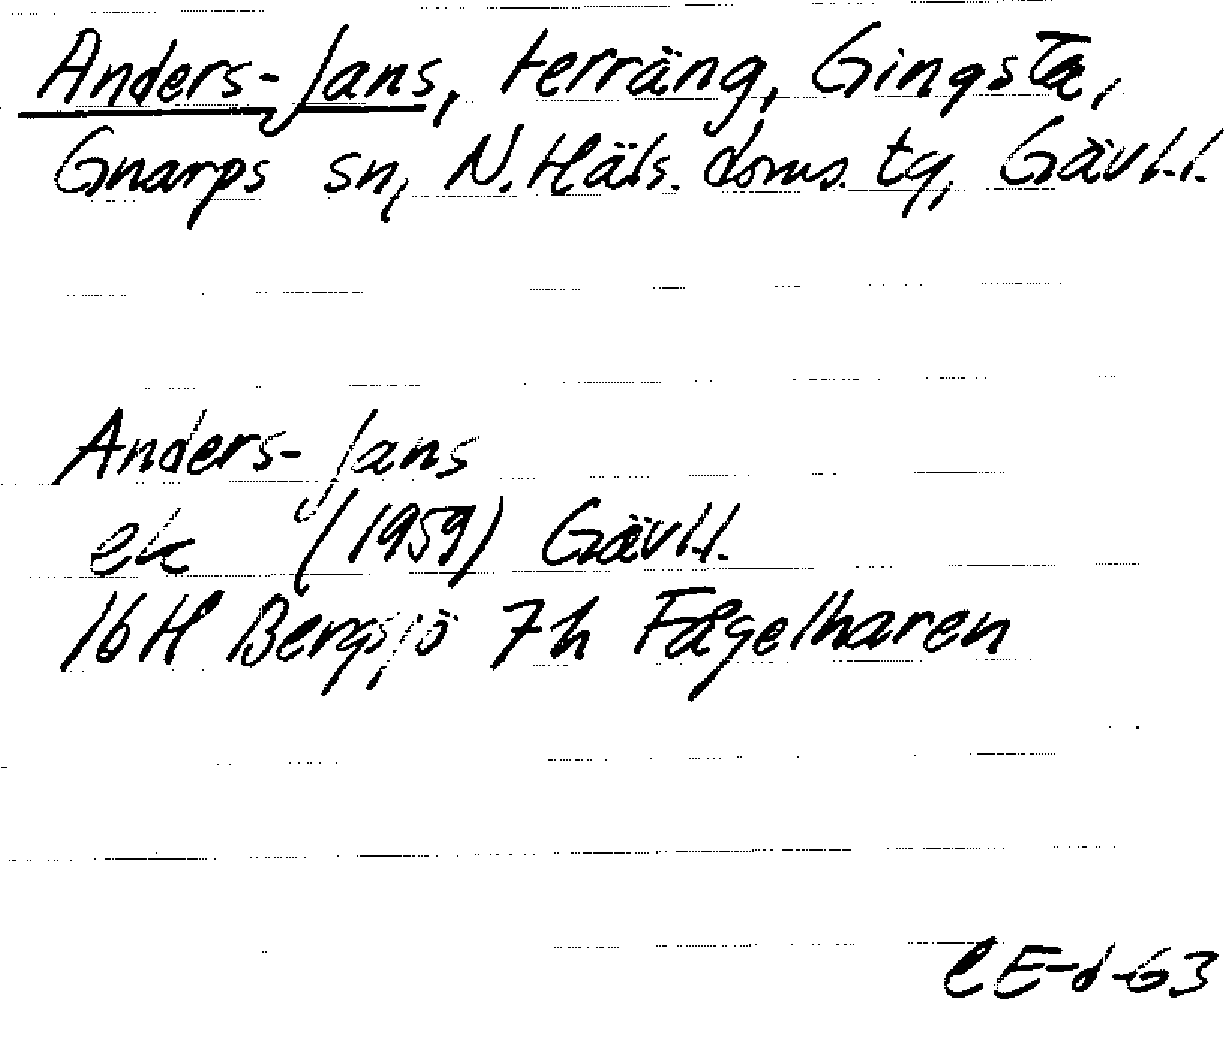 Anders-Jans, terräng, Gingsta,
Gnarps sn, N. Häls. doms. tg, Gävl.l.
Anders-Jans
ek (1959) Gävl.l.
16H Bergsjö 7h Fågelharen
CE-d-63